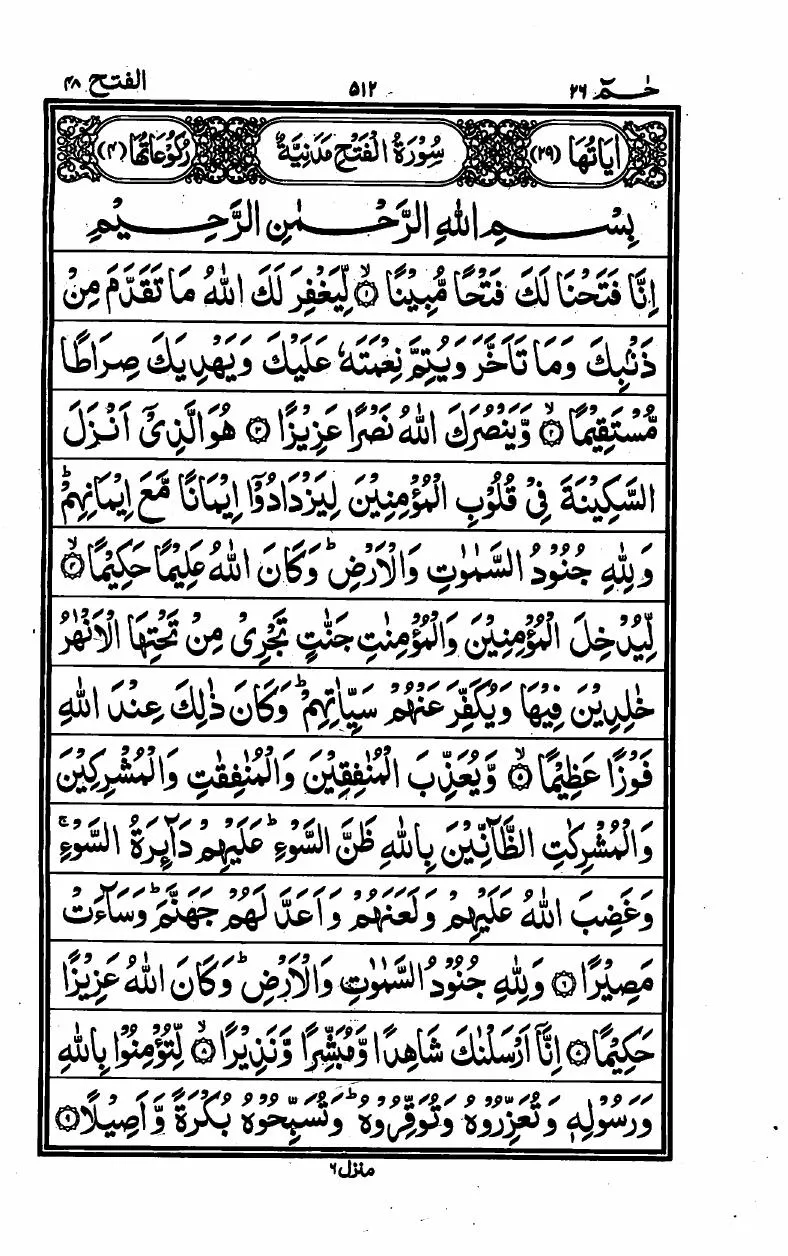 حٰمٓ ٢٦ ٥١٢ الفتح ٤٨
اٰيَاتُهَا (٢٩) سُوْرَةُ الْفَتْحِ مَدَنِيَّةٌ رُكُوْعَاتُهَا (٤)
بِسْمِ اللّٰهِ الرَّحْمٰنِ الرَّحِيْمِ
اِنَّا فَتَحْنَا لَكَ فَتْحًا مُّبِيْنًا ۙ﴿١﴾ لِّيَغْفِرَ لَكَ اللّٰهُ مَا تَقَدَّمَ مِنْ
ذَنْۢبِكَ وَمَا تَاَخَّرَ وَيُتِمَّ نِعْمَتَهٗ عَلَيْكَ وَيَهْدِيَكَ صِرَاطًا
مُّسْتَقِيْمًا ۙ﴿٢﴾ وَّيَنْصُرَكَ اللّٰهُ نَصْرًا عَزِيْزًا ﴿٣﴾ هُوَ الَّذِيْٓ اَنْزَلَ
السَّكِيْنَةَ فِيْ قُلُوْبِ الْمُؤْمِنِيْنَ لِيَزْدَادُوْٓا اِيْمَانًا مَّعَ اِيْمَانِهِمْ ؕ
وَلِلّٰهِ جُنُوْدُ السَّمٰوٰتِ وَالْاَرْضِ ؕ وَكَانَ اللّٰهُ عَلِيْمًا حَكِيْمًا ۙ﴿٤﴾
لِّيُدْخِلَ الْمُؤْمِنِيْنَ وَالْمُؤْمِنٰتِ جَنّٰتٍ تَجْرِيْ مِنْ تَحْتِهَا الْاَنْهٰرُ
خٰلِدِيْنَ فِيْهَا وَيُكَفِّرَ عَنْهُمْ سَيِّاٰتِهِمْ ؕ وَكَانَ ذٰلِكَ عِنْدَ اللّٰهِ
فَوْزًا عَظِيْمًا ۙ﴿٥﴾ وَّيُعَذِّبَ الْمُنٰفِقِيْنَ وَالْمُنٰفِقٰتِ وَالْمُشْرِكِيْنَ
وَالْمُشْرِكٰتِ الظَّآنِّيْنَ بِاللّٰهِ ظَنَّ السَّوْءِ ؕ عَلَيْهِمْ دَآئِرَةُ السَّوْءِ ۚ
وَغَضِبَ اللّٰهُ عَلَيْهِمْ وَلَعَنَهُمْ وَاَعَدَّ لَهُمْ جَهَنَّمَ ؕ وَسَآءَتْ
مَصِيْرًا ﴿٦﴾ وَلِلّٰهِ جُنُوْدُ السَّمٰوٰتِ وَالْاَرْضِ ؕ وَكَانَ اللّٰهُ عَزِيْزًا
حَكِيْمًا ﴿٧﴾ اِنَّآ اَرْسَلْنٰكَ شَاهِدًا وَّمُبَشِّرًا وَّنَذِيْرًا ۙ﴿٨﴾ لِّتُؤْمِنُوْا بِاللّٰهِ
وَرَسُوْلِهٖ وَتُعَزِّرُوْهُ وَتُوَقِّرُوْهُ ؕ وَتُسَبِّحُوْهُ بُكْرَةً وَّاَصِيْلًا ﴿٩﴾
منزل ٦